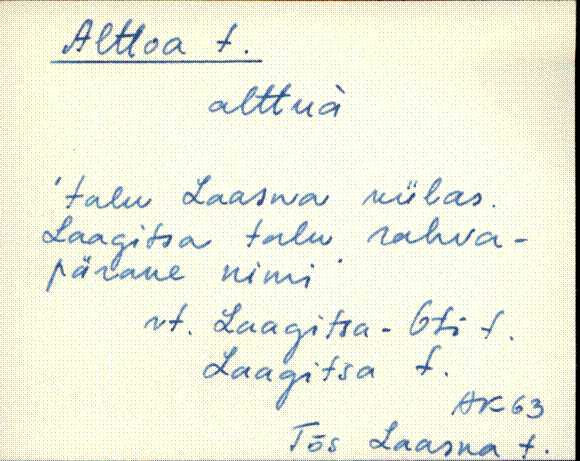 Alttoa t.
alttuà
'talu Laasna külas.
Laagitsa talu rahva-
pärane nimi'
vt. Laagitsa-Oti t.
Laagitsa t.
AK 63
Tõs Laasna t.